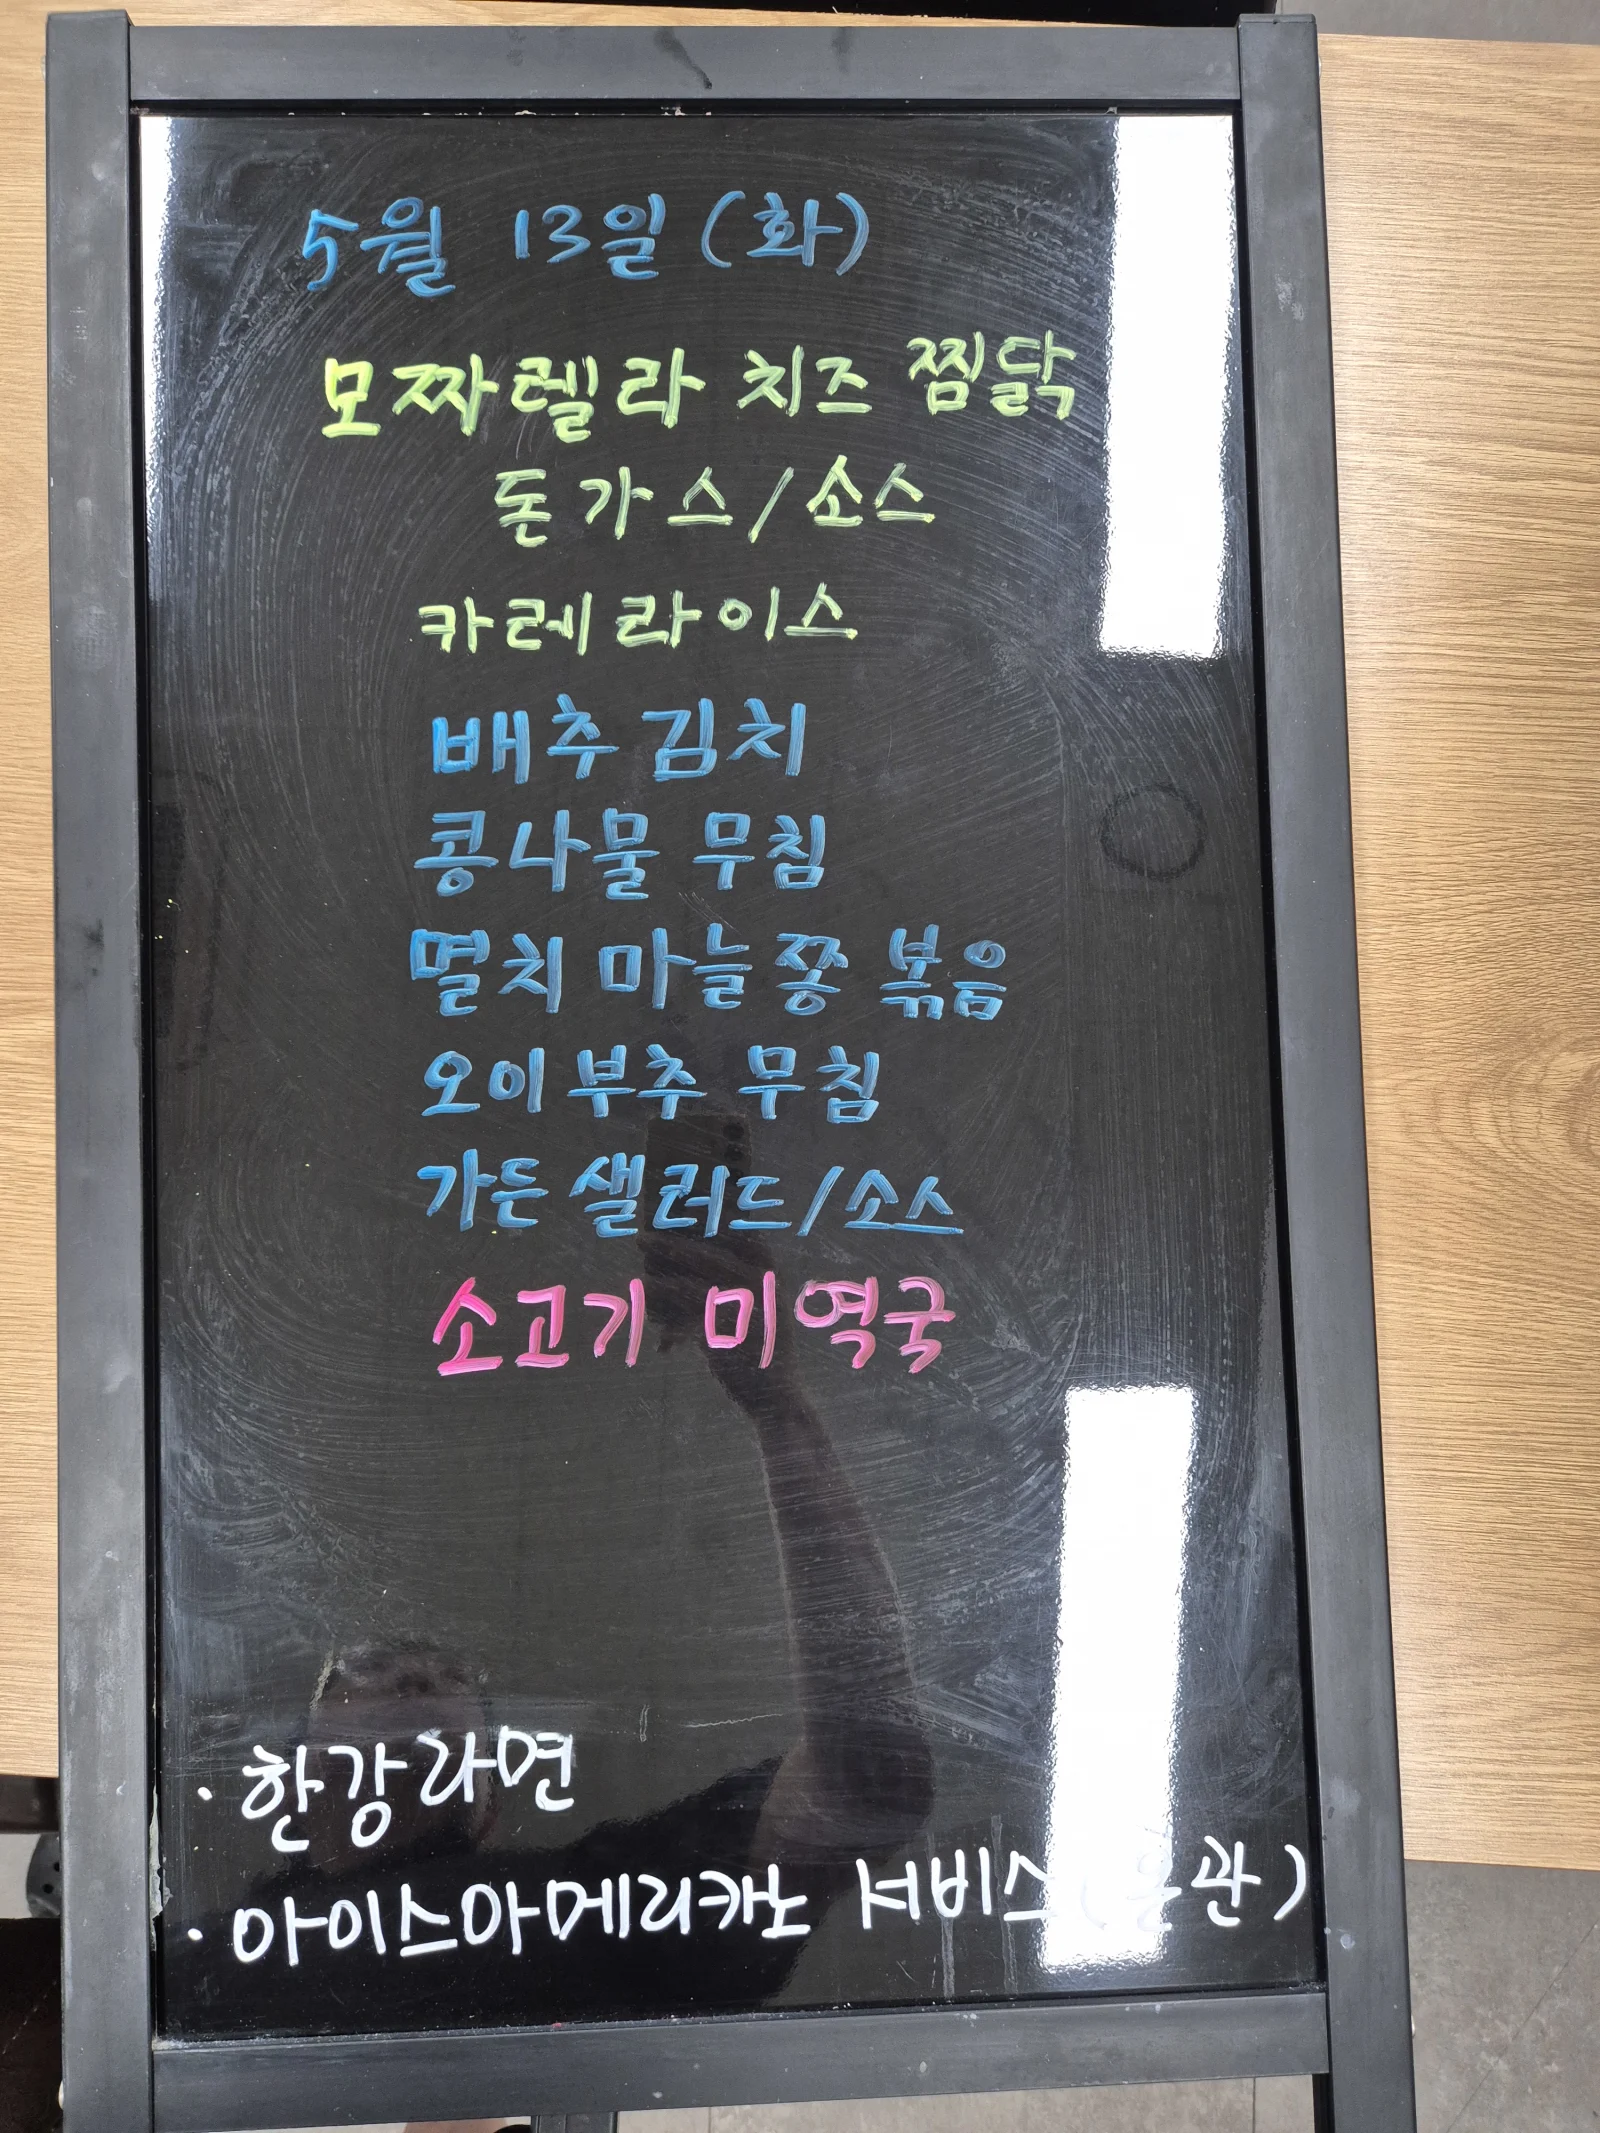 5월 13일 (화)
모짜렐라 치즈 찜닭
돈가스/소스
카레라이스
배추김치
콩나물 무침
멸치 마늘쫑 볶음
오이부추 무침
가든 샐러드/소스
소고기 미역국
· 한강라면
· 아이스아메리카노 서비스